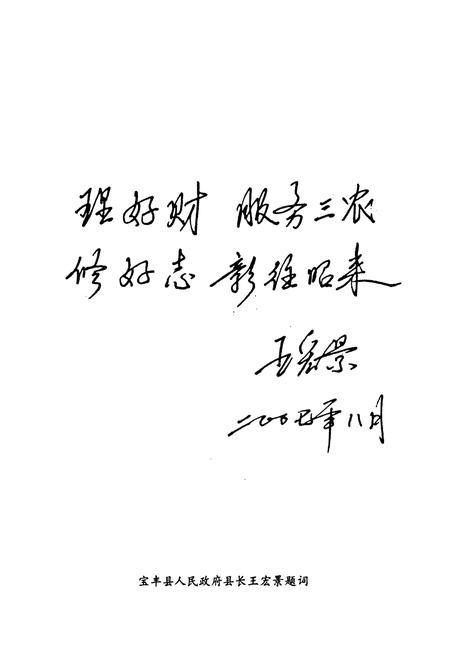 理好财 服务三农
修好志 彰往昭来
王宏景
二〇〇七年八月
宝丰县人民政府县长王宏景题词